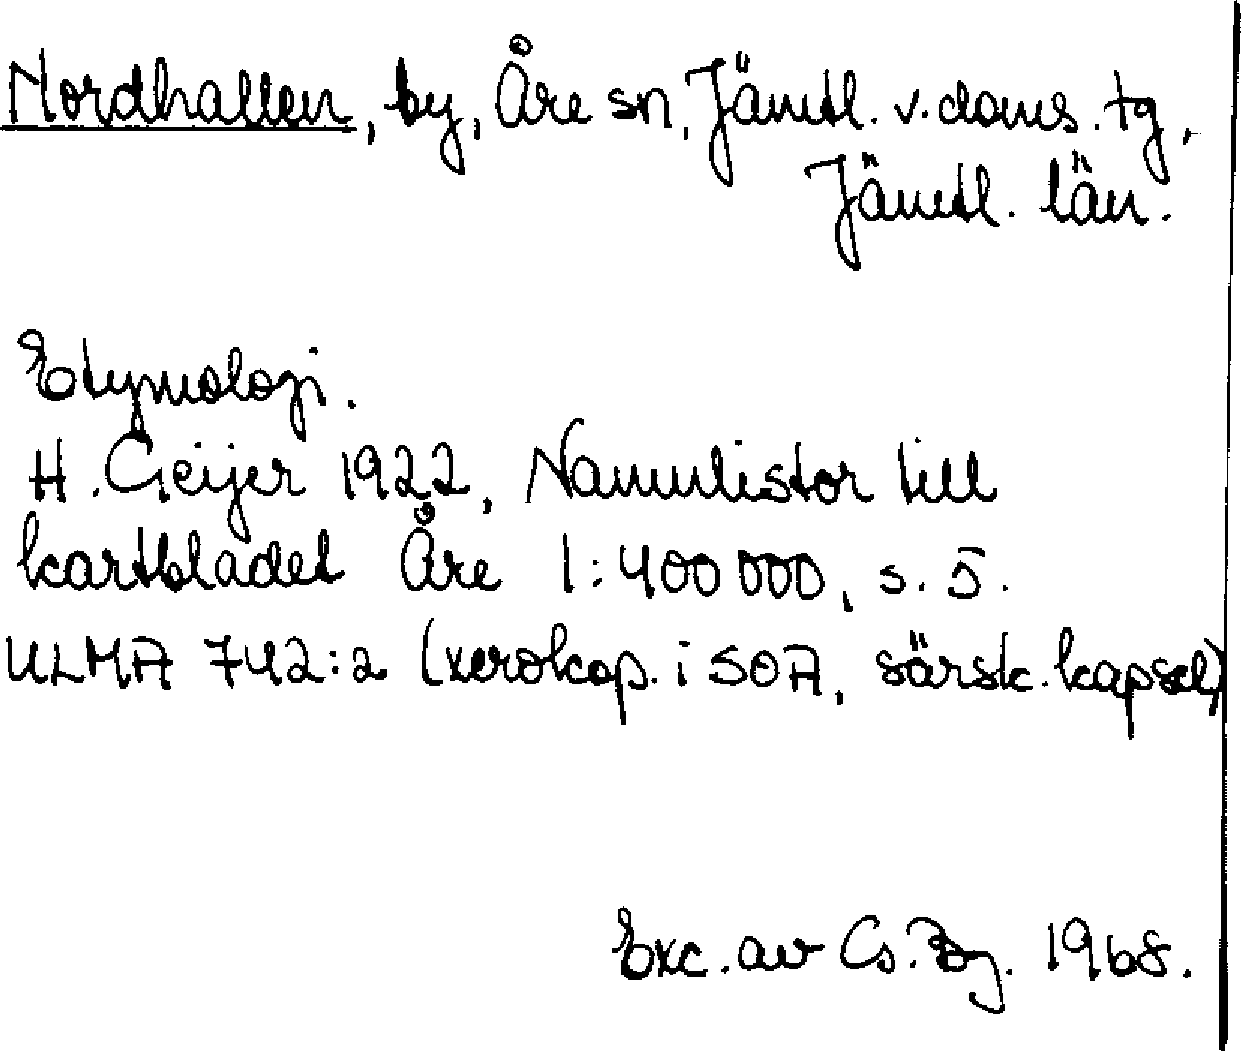 Nordhallen, by, Åre sn, Jämtl. v. doms. tg,
Jämtl. län.
Etymologi.
H. Geijer 1922, Namnlistor till
kartbladet Åre 1:400 000, s. 5.
ULMA 742:2 (xerokop. i SOA, särsk. kapsel)
Exc. av Cs. Bg. 1968.